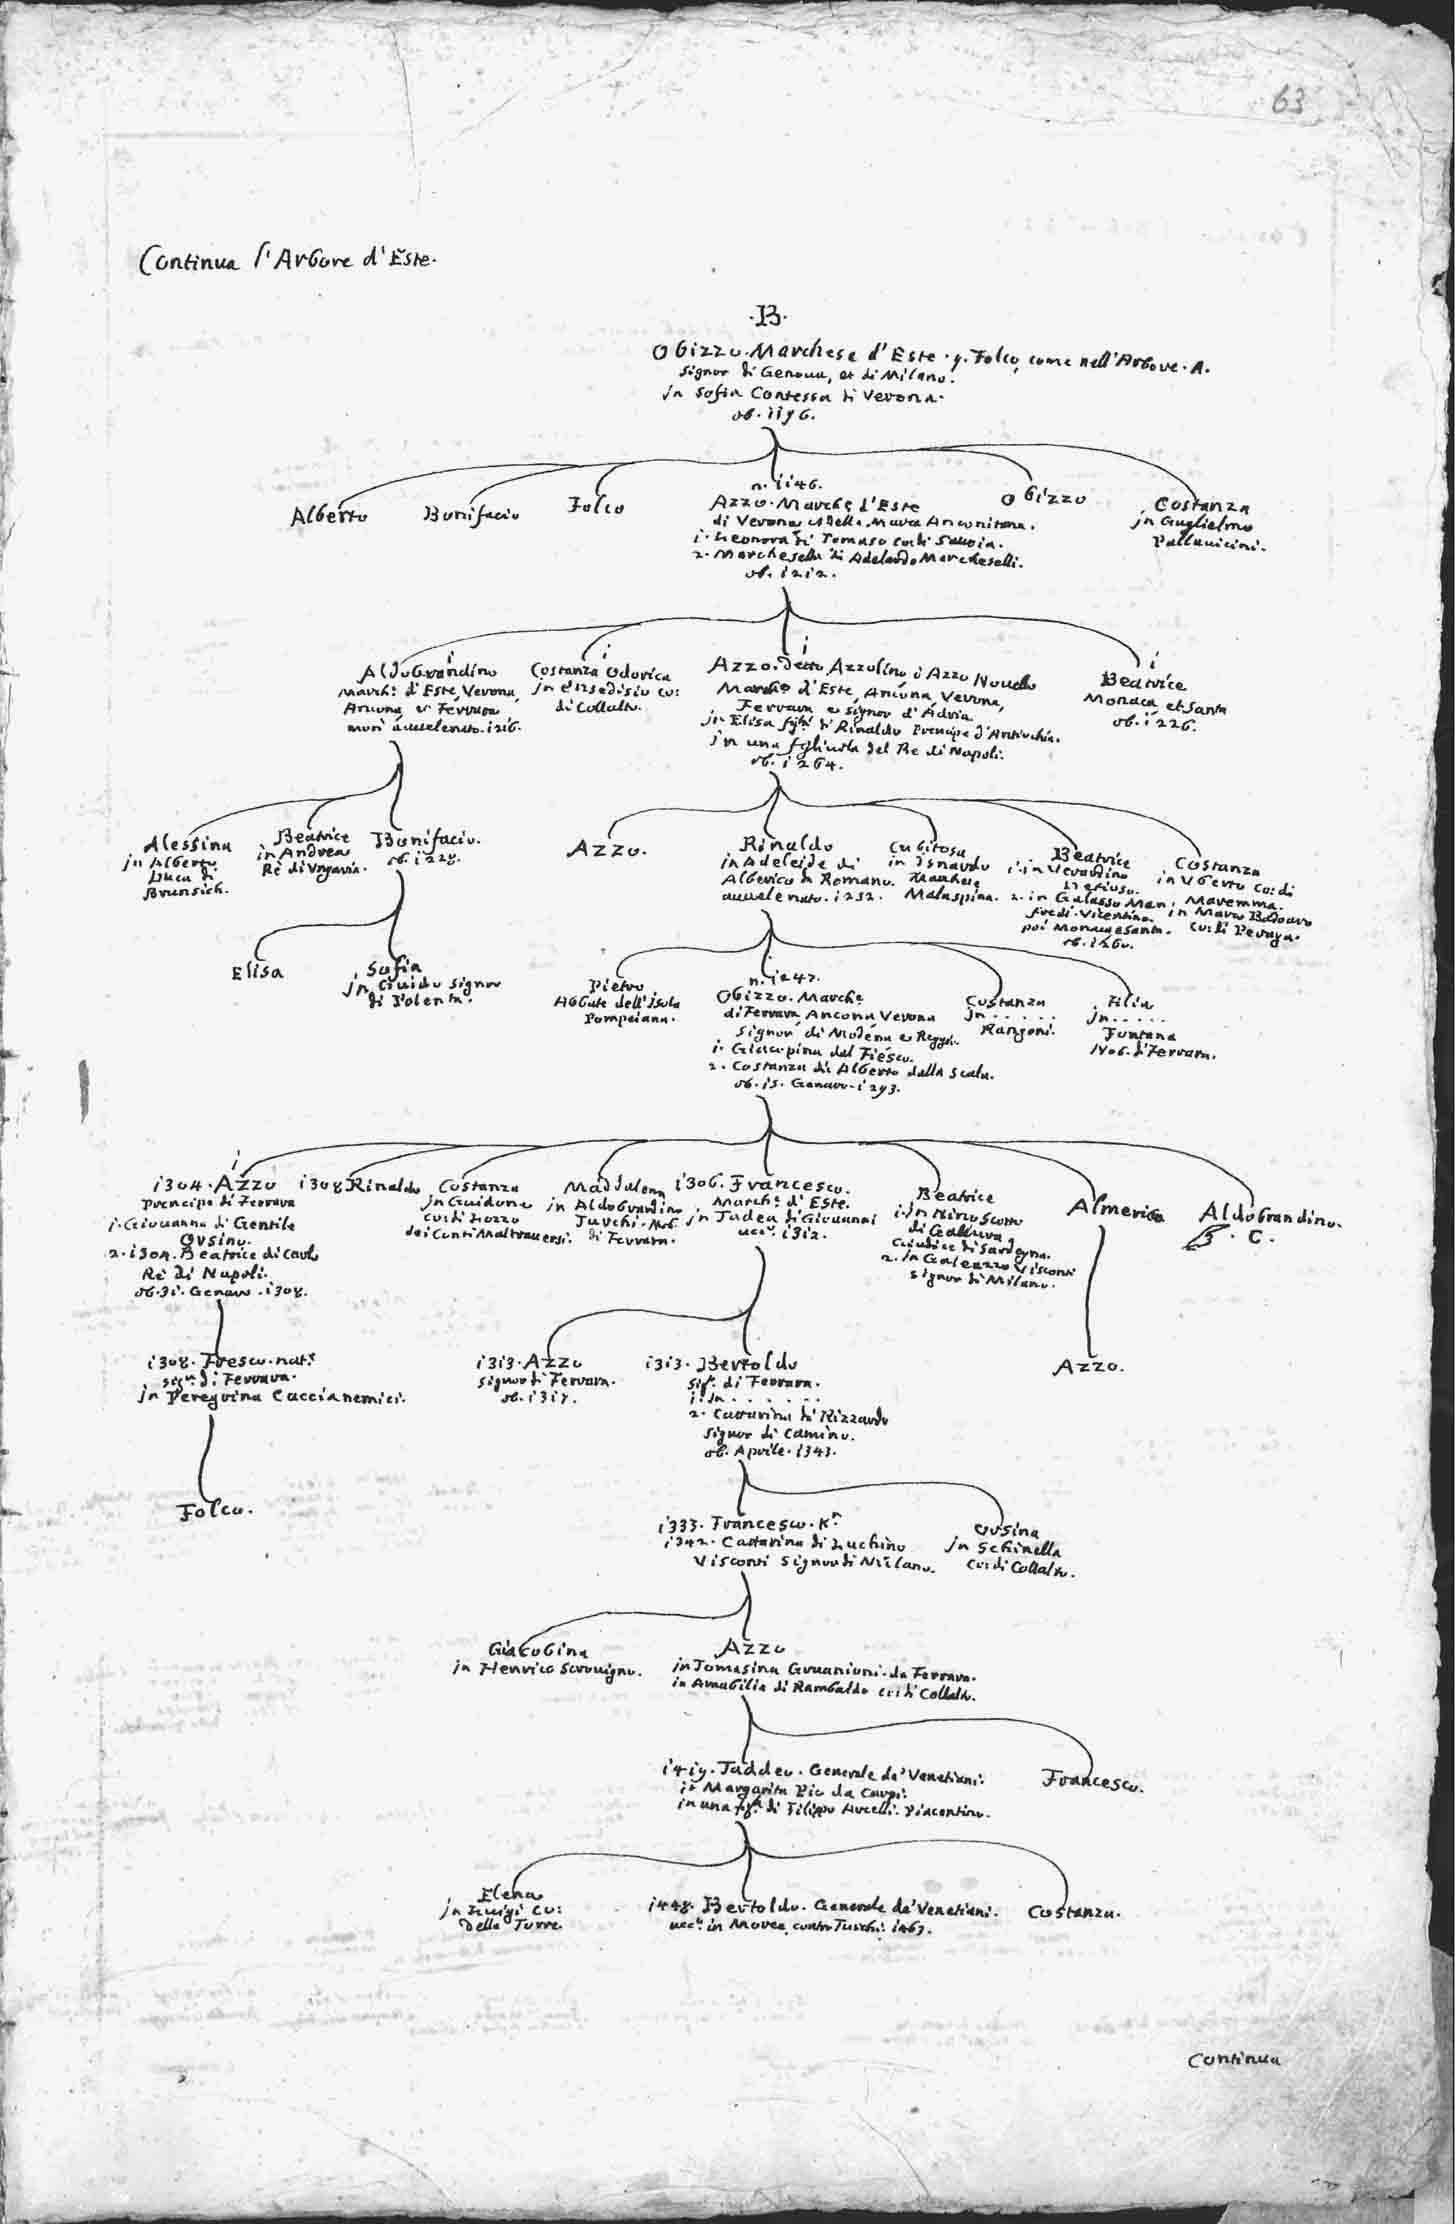 63
Continua l'Arbore d'Este.
.B.
Obizzo. Marchese d'Este. q. Folco, come nell'Arbore. A.
Signor di Genoua, et di Milano.
in Sofia Contessa di Verona.
ob. 1196.
Alberto
Bonifacio
Folco
n. 1146.
Azzo. Marche d'Este
di Verona, et della Marca Anconitana.
1. Leonora di Tomaso co: di Sauoia.
2. Marchesella di Adelardo Marcheselli.
ob. 1212.
Obizzo
Costanza
in Guglielmo
Pallauicini.
1
Aldobrandino
March: d'Este, Verona,
Ancona, et Ferrara
morì auuelenato. 1216.
1
Costanza Odorica
in Ensedisio co:
di Collalto.
1
Azzo. detto Azzolino ò Azzo Nouello
March: d'Este, Ancona, Verona,
Ferrara e signor d'Adria.
in Elisa figl: di Rinaldo Prencipe d'Antiochia.
in una figliuola del Re di Napoli.
ob. 1264.
1
Beatrice
Monaca et Santa
ob. 1226.
Alessina
in Alberto
Duca di
Brunsich.
Beatrice
in Andrea
Rè di Vngaria.
Bonifacio.
ob. 1228.
Azzo.
Rinaldo
in Adeleide di
Alberico da Romano.
auuelenato. 1252.
Cubitosa
in Isnardo
Marchese
Malaspina.
Beatrice
1. in Verardino
2. in Galasso Man:
fredi. Vicentino.
poi Monaca e Santa.
ob. 1260.
Costanza
in Vberto co: di
Maremma.
in Marco Badoaro
co: di Peraga.
Elisa
Sofia
in Guido Signor
di Polenta.
Pietro
Abbate dell'Isola
Pompeiana.
n. 1247.
Obizzo. Marche
di Ferrara, Ancona, Verona
Signor di Modena e Reggio.
1. Giacopina dal Fiesco.
2. Costanza di Alberto dalla Scala.
ob. 15. Genaro. 1293.
Costanza
in . . . . .
Rangoni.
Filia
in . . . . .
Fontana
Nob. di Ferrara.
1
1304. Azzo
prencipe di Ferrara
1. Giouanna di Gentile
Orsino.
2. 1304. Beatrice di Carlo
Rè di Napoli.
ob. 31. Genaro. 1308.
1308 Rinaldo
Costanza
in Guidone
co: di Lozzo
dei Conti Maltrauersi.
Maddalena
in Aldobrandino
Turchi. Nob.
di Ferrara.
1306. Francesco.
March: d'Este.
in Tadea di Giouanni
ucc: 1312.
Beatrice
1. in Nino Scotto
di Gallura
Giudice di Sardegna.
2. in Galeazzo Visconti
signor di Milano.
Almerico
Aldobrandino.
. C.
1308. Fresco. nat:
sigr. di Ferrara.
in Peregrina Caccianemici.
1313. Azzo
signor di Ferrara.
ob. 1317.
1313. Bertoldo
sigr. di Ferrara.
1. in . . . . . .
2. Cattarina di Rizzardo
Signor di Camino.
ob. Aprile. 1343.
Azzo.
Folco.
1333. Francesco. Kr.
1342. Cattarina di Luchino
Visconti Signor di Milano.
Orsina
in Schinella
co: di Collalto.
Giacobina
in Henrico Scrouigno.
Azzo
in Tomasina Gruanioni. da Ferrara.
in Amabilia di Rambaldo co: di Collalto.
1419. Taddeo. Generale de' Venetiani.
in Margarita Pio da Carpi.
in una figl: di Filippo Arcelli. Piacentino.
Francesco.
Elena
in Luigi Co:
della Torre.
1448. Bertoldo. Generale de' Venetiani.
ucc: in Morea, contro Turchi. 1463.
Costanza.
Continua